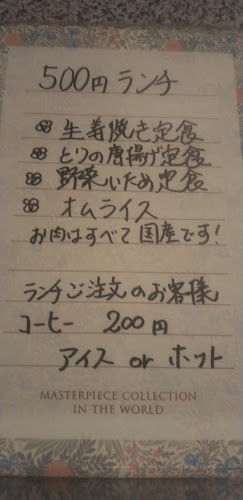 500円 ランチ
生姜焼き定食
とりの唐揚げ定食
野菜いため定食
オムライス
お肉はすべて国産です!
ランチご注文のお客様
コーヒー 200円
アイス or ホット
MASTERPIECE COLLECTION
IN THE WORLD